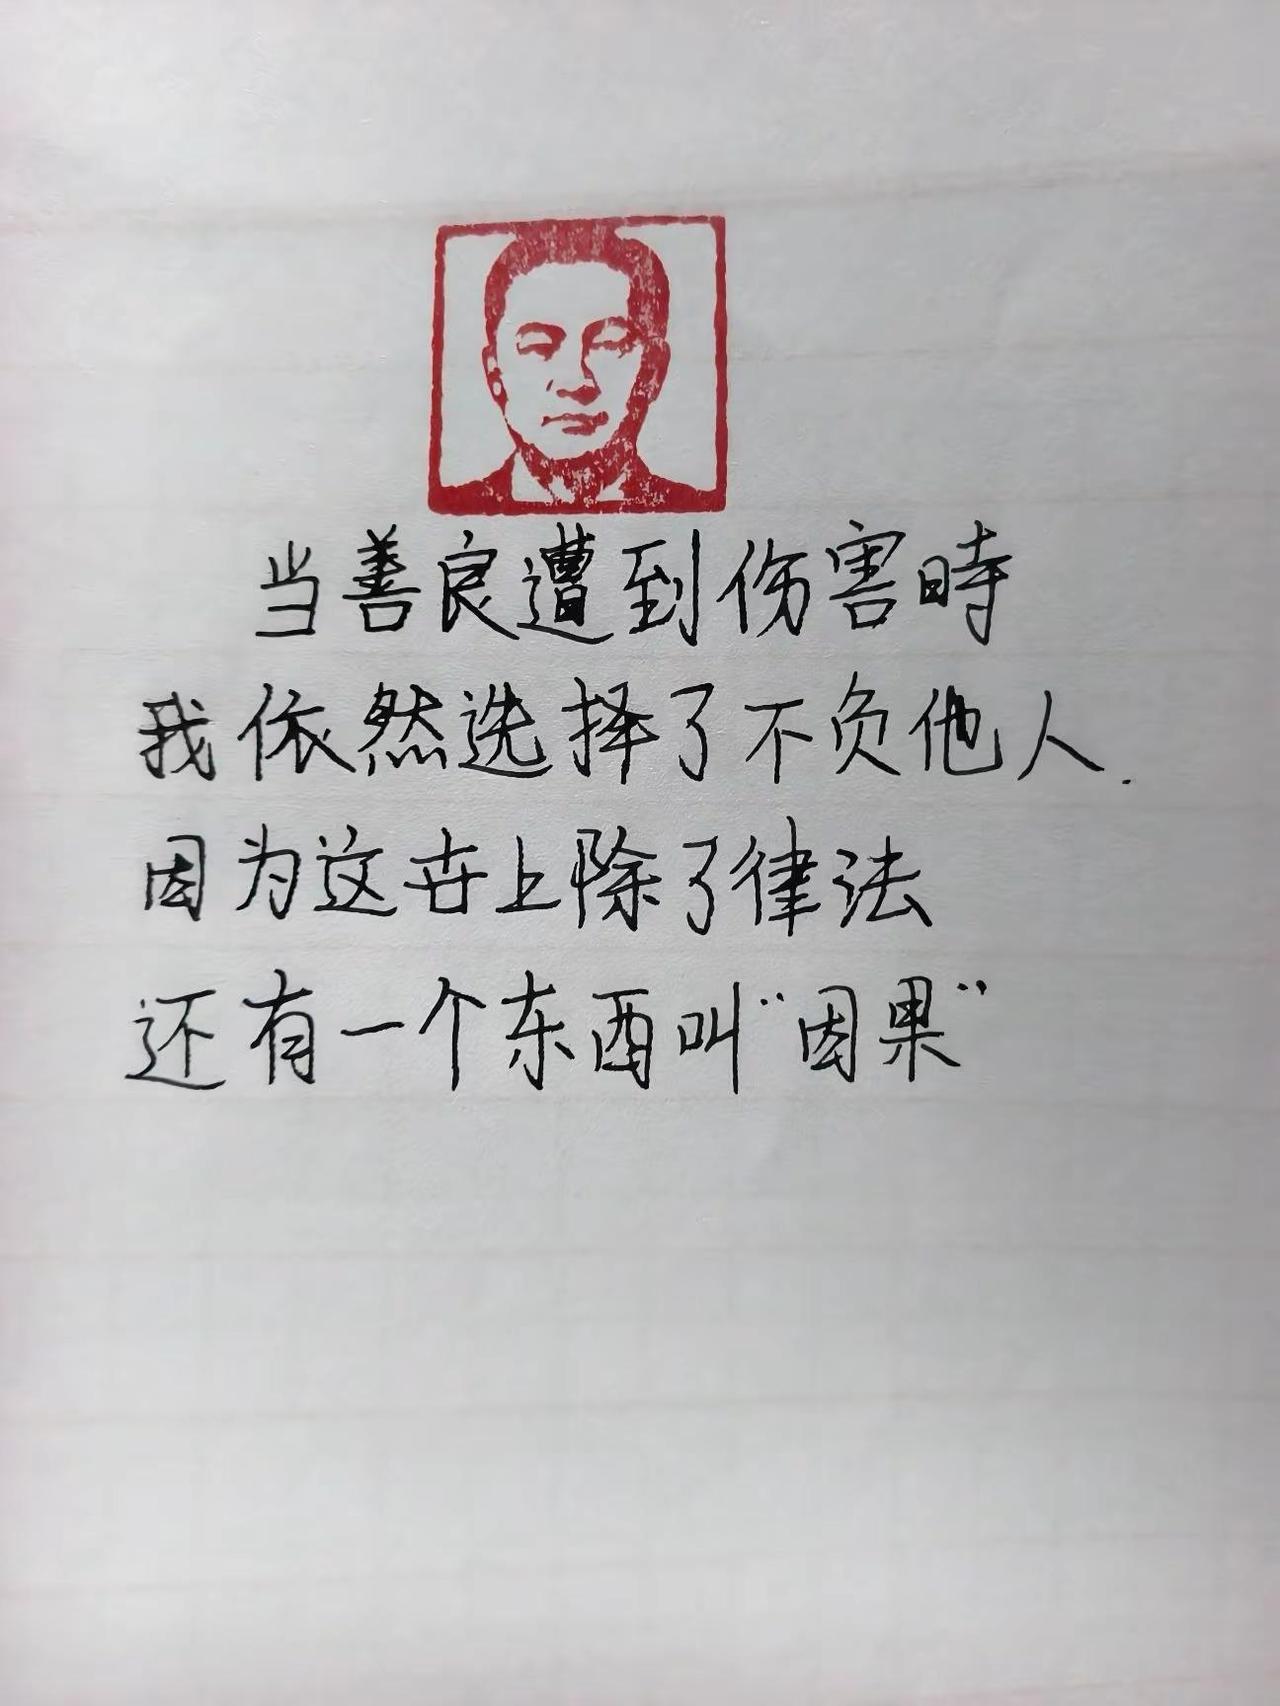 当善良遭到伤害時
我依然选择了不负他人.
因为这世上除了律法
还有一个东西叫“因果”